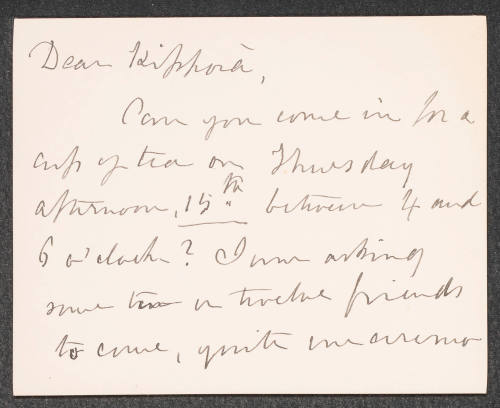 Dear Kifforà,
Can you come in for a
cup of tea on Thursday
afternoon, 15th between 4 and
6 o'clock? I am asking
some ten or twelve friends
to come, quite unceremo